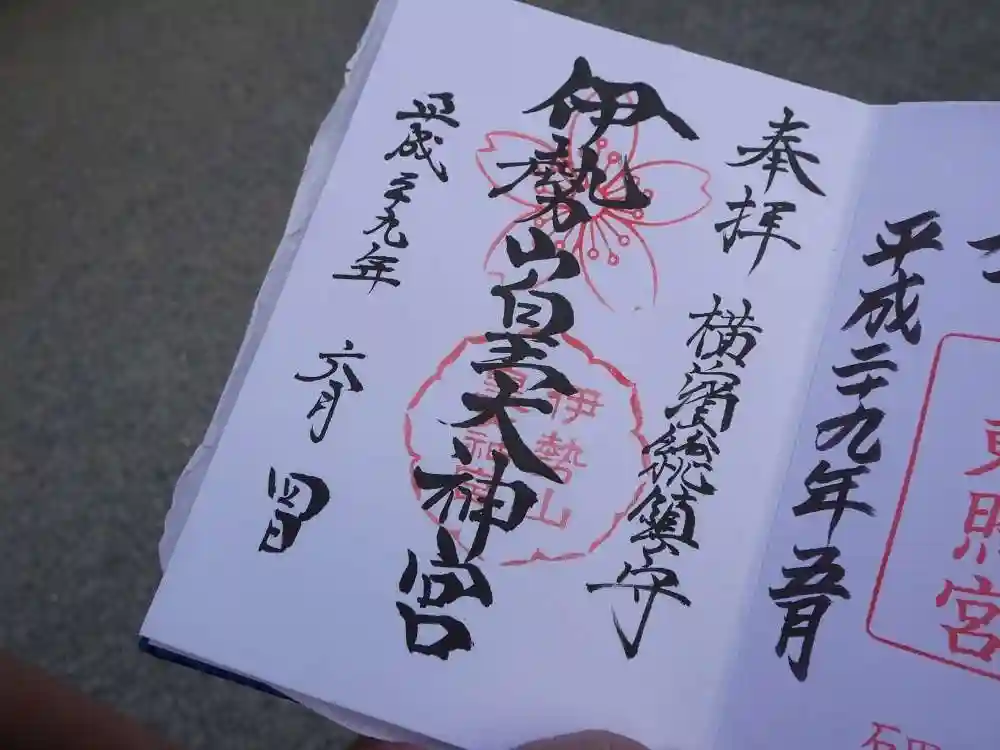 奉拝
横濱総鎮守
伊勢山皇大神宮
伊勢山
皇大神宮
平成二九年
六月
四日
平成二十九年五月
東照宮